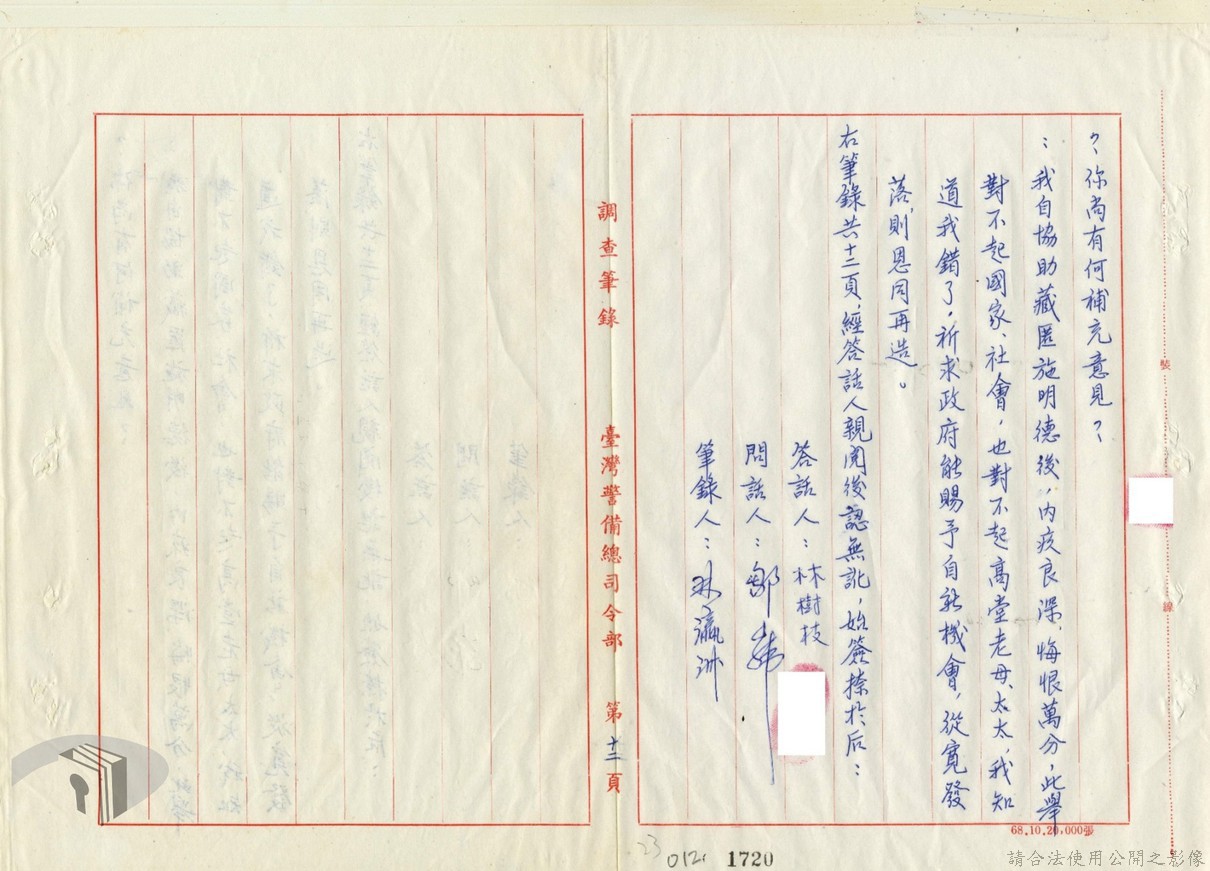 ？：你尚有何補充意見？
：我自協助藏匿施明德後，內疚良深、悔恨萬分，此舉
對不起國家、社會，也對不起高堂老母、太太，我知
道我錯了，祈求政府能賜予自新機會，從寬發
落，則恩同再造。
右筆錄共十二頁，經答話人親閱後認無訛，始簽捺於后：
答話人：林樹枝
問話人：鄒
筆錄人：林瀛洲
調查筆錄 臺灣警備總司令部 第十二頁
裝
線
68.10.20,000張
23 012 1720
請合法使用公開之影像